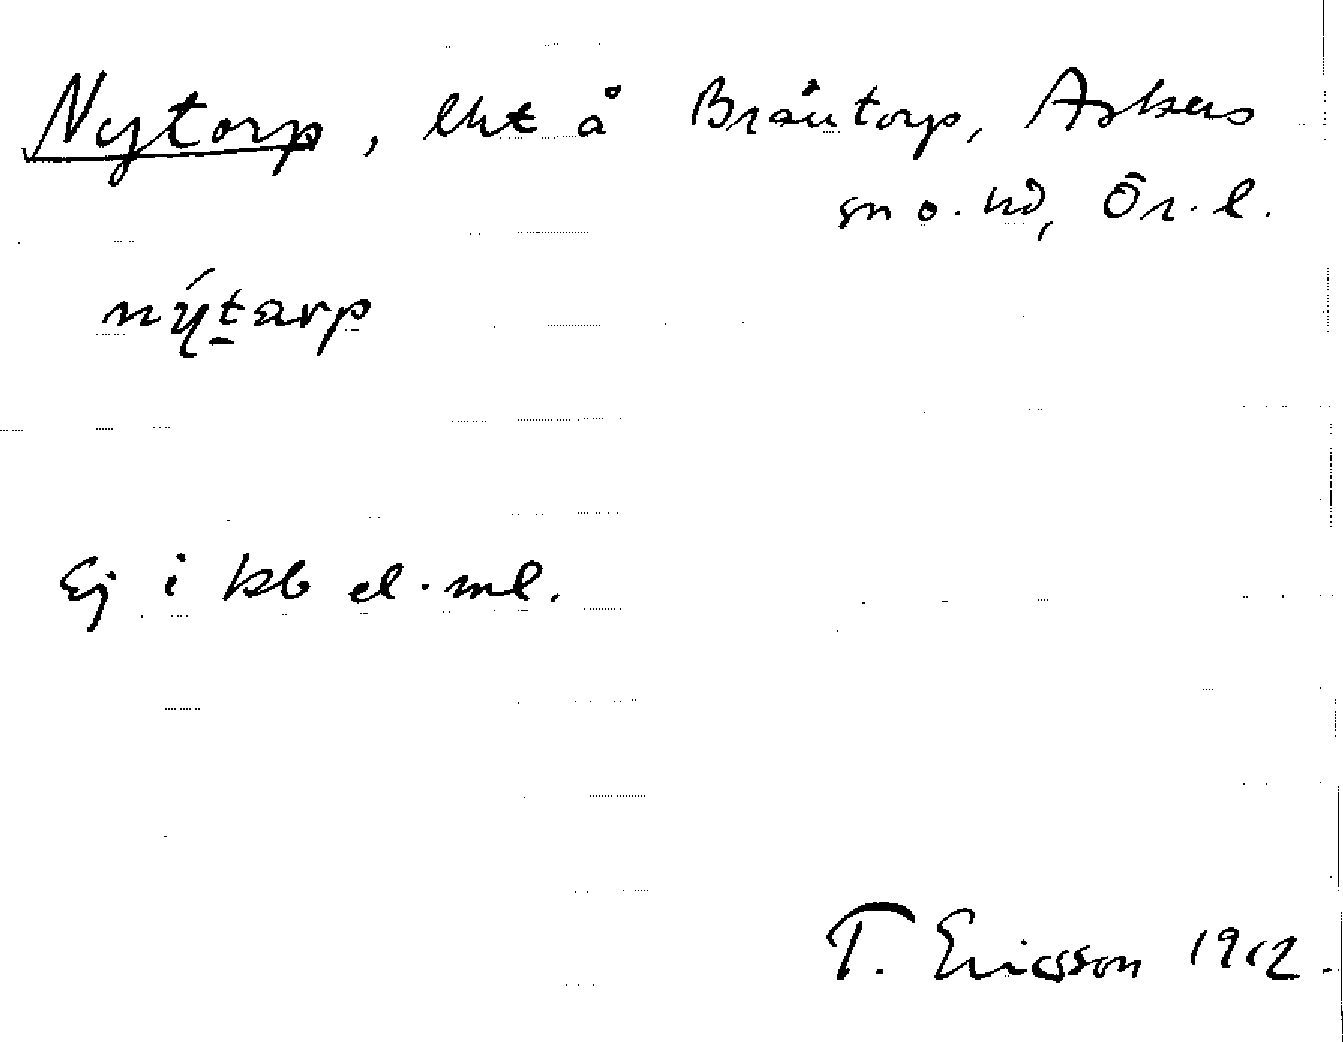 Nytorp, lht å Bråtorp, Askers
sn o. hd, Ör. l.
nýtarp
Ej i kb el. ml.
T. Ericsson 1912.